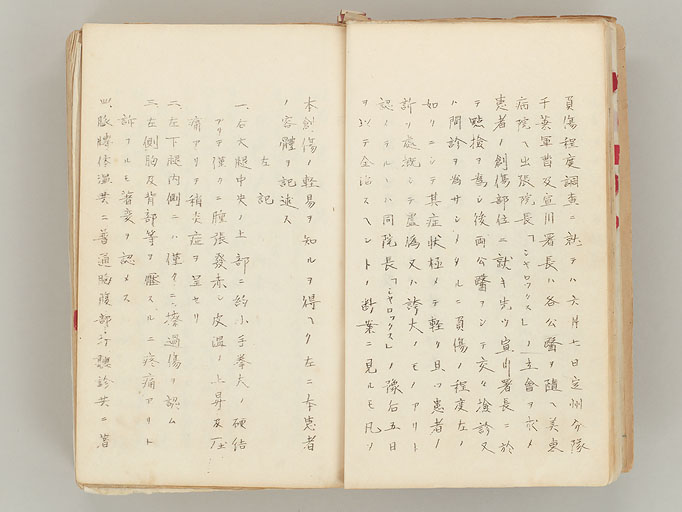 負傷程度調査ニ就テハ六月七日定州分隊
千葉軍曹及宣川署長ハ各公醫ヲ随ヘ美東
病院ヘ出張院長「シャロックス」ノ立會ヲ求メ
患者ノ創傷部位ニ就キ先ツ宣川署長ニ於
テ臨檢ヲ為シ後両公醫ヲシテ交々診又
ハ問診ヲ為サシメタルニ負傷ノ程度左ノ
如クニシテ其症状極メテ軽ク且ツ患者ノ
訴ノ處概シテ虚偽又ハ誇大ノモノアリト
認メラル同院長「シャロックス」ノ豫后五日
ヲ以テ全治スヘシトノ断案ニ見ルモ凡ソ
本創傷ノ軽易ヲ知ルヲ得ヘク左ニ本患者
ノ容體ヲ記述ス
左記
一、右大腿中央ノ上部ニ約小手拳大ノ硬結
アリテ僅クニ腫張發赤シ皮温ノ上昇及圧
痛アリテ稍炎症ヲ呈セリ
二、左下腿内側ニハ僅クニ擦過傷ヲ認ム
三、左側胸及背部等ヲ壓スルニ疼痛アリト
訴フルモ著変ヲ認メス
四、脈膊体温共ニ普通胸腹部ノ打聴診共ニ著